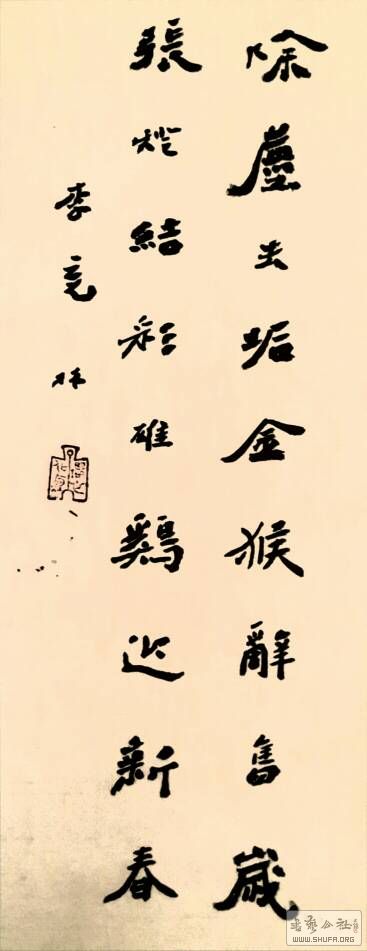 除塵去垢金猴辭舊歲
張燈結彩雄鷄迎新春
李克
WWW.SHUFA.ORG